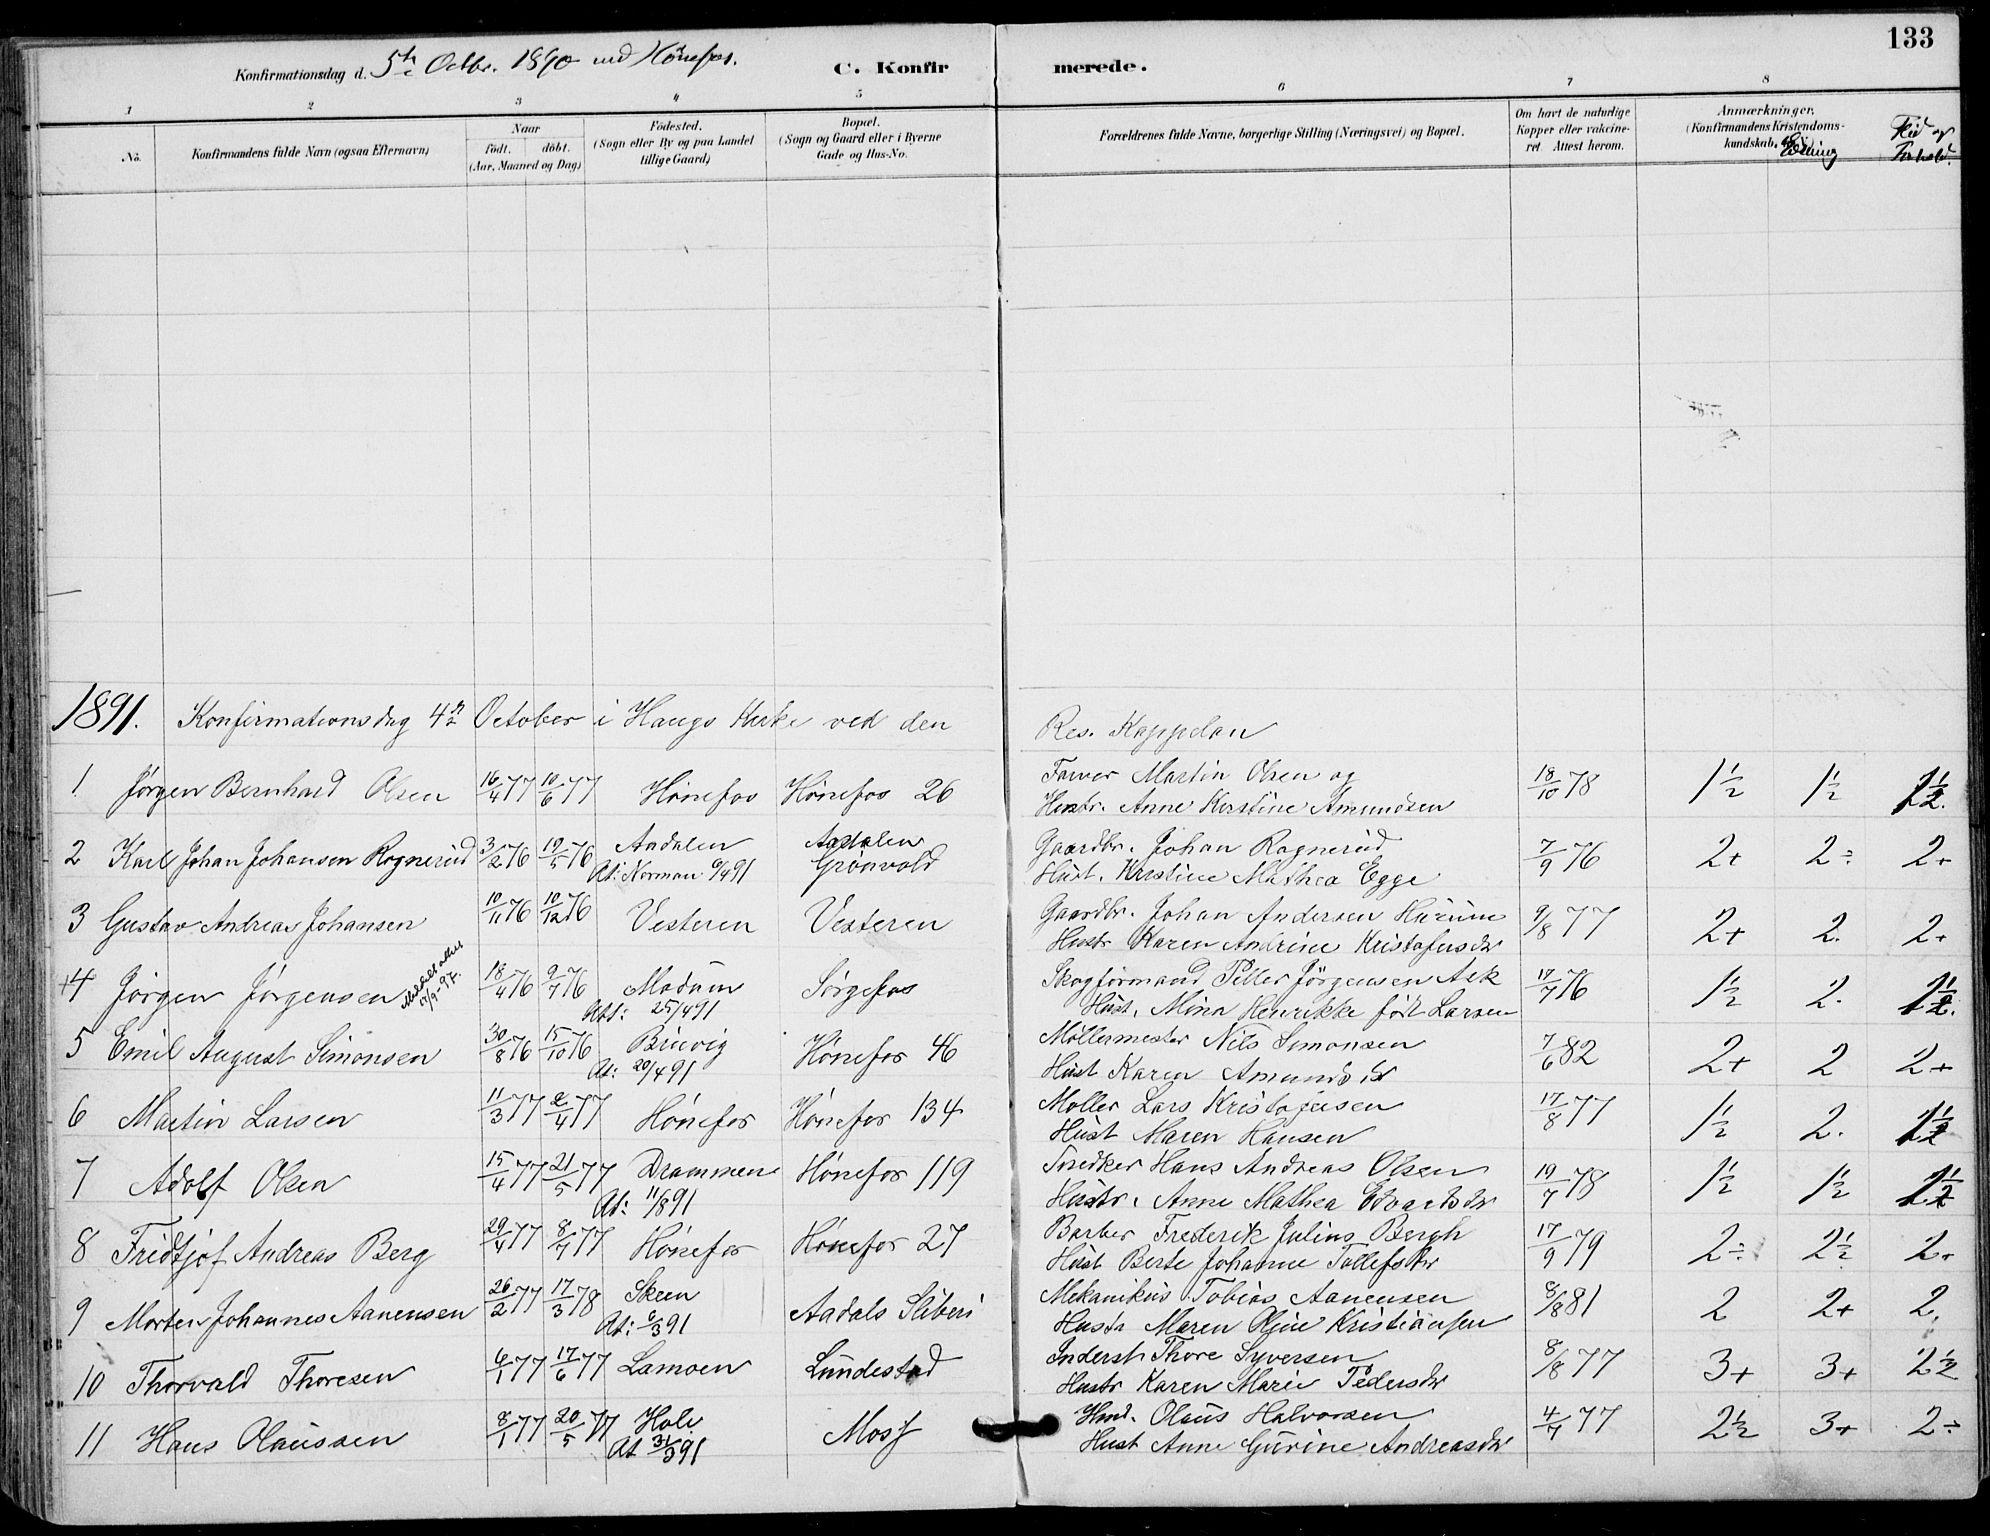 133
Konfirmationsdag d. 5te Octbr. 1890 ved Hønefos.
C. Konfirmerede.
1 2 3 4 5 6 7 8
No.
Konfirmandens fulde Navn (ogsaa Efternavn)
Naar
født. døbt.
(Aar, Maaned og Dag)
Fødested.
(Sogn eller By og paa Landet
tillige Gaard)
Bopæl.
(Sogn og Gaard eller i Byerne
Gade og Hus-No.
Forældrenes fulde Navne, borgerlige Stilling (Næringsvei) og Bopæl.
Om havt de naturlige
Kopper eller vakcine-
ret Attest herom.
Anmærkninger.
(Konfirmandens Kristendoms-
kundskab,
Flid og
Forhold.
1891. Konfirmationsdag 4de October i Haugs Kirke ved den Res. Kappelan
1 Jørgen Bernhard Olsen 16/4 77 10/6 77 Hønefos Hønefos 26 Farver Martin Olsen og 18/10 78 1½ 1½ 1½.
Hustr. Anne Kirstine Amundsen
2 Karl Johan Johansen Rognerud 3/2 76 19/5 76 Aadalen Aadalen Gaardbr. Johan Rognerud 7/9 76 2+ 2÷ 2+
At: Norman 6/4 91 Grönvold Hust. Kirstine Mathea Egge
3 Gustav Andreas Johansen 10/11 76 10/12 76 Vesteren Vesteren Gaardbr. Johan Andersen Hurum 9/8 77 2+ 2. 2+
Hustr Karen Andrine Kristofersdtr
+4 Jørgen Jørgensen 18/4 76 9/7 76 Modum Sørgefos Skogformand Petter Jörgensen Ask 17/7 76 1½ 2. 1½.
17/9-97. Att: 25/4 91 Hust. Mina Henrikke født Larsen
5 Emil August Simonsen 30/8 76 15/10 76 Bruvig Hønefos 46 Møllermester Nils Simonsen 7/6 82 2+ 2 2+
At: 20/4 91 Hust Karen Amundsdtr
6 Martin Larsen 11/3 77 2/4 77 Hønefos Hønefos 134 Møller Lars Kristofersen 17/8 77 1½ 2. 1½
Hust Maren Hansen
7 Adolf Olsen 15/4 77 21/5 77 Drammen Hønefos 119 Snedker Hans Andreas Olsen 19/7 78 1½ 1½ 1½
At: 11/8 91 Hustr. Anne Mathea Edvardsdtr
8 Fridtjof Andreas Berg 29/4 77 8/7 77 Hønefos Hønefos 27 Barber Frederik Julius Bergh 17/9 79 2÷ 2½ 2+
Hust Berte Johanne Tollefsdtr
9 Morten Johannes Aanensen 26/2 77 17/3 78 Skeen Aadals Sliberi Mekanikus Tobias Aanensen 8/8 81 2 2+ 2.
At: 6/3 91 Hustr Maren Oline Kristiansen
10 Thorvald Thoresen 6/1 77 17/6 77 Lamoen Lundestad Inderst Thore Syversen 8/8 77 3+ 3+ 2½
Hustr Karen Marie Pedersdtr
11 Hans Olaussen 8/1 77 20/5 77 Hole Mosj Hmd. Olaus Halvorsen 4/7 77 2½ 3+ 2÷
At 31/3 91 Hust Anne Gurine Andreasdtr